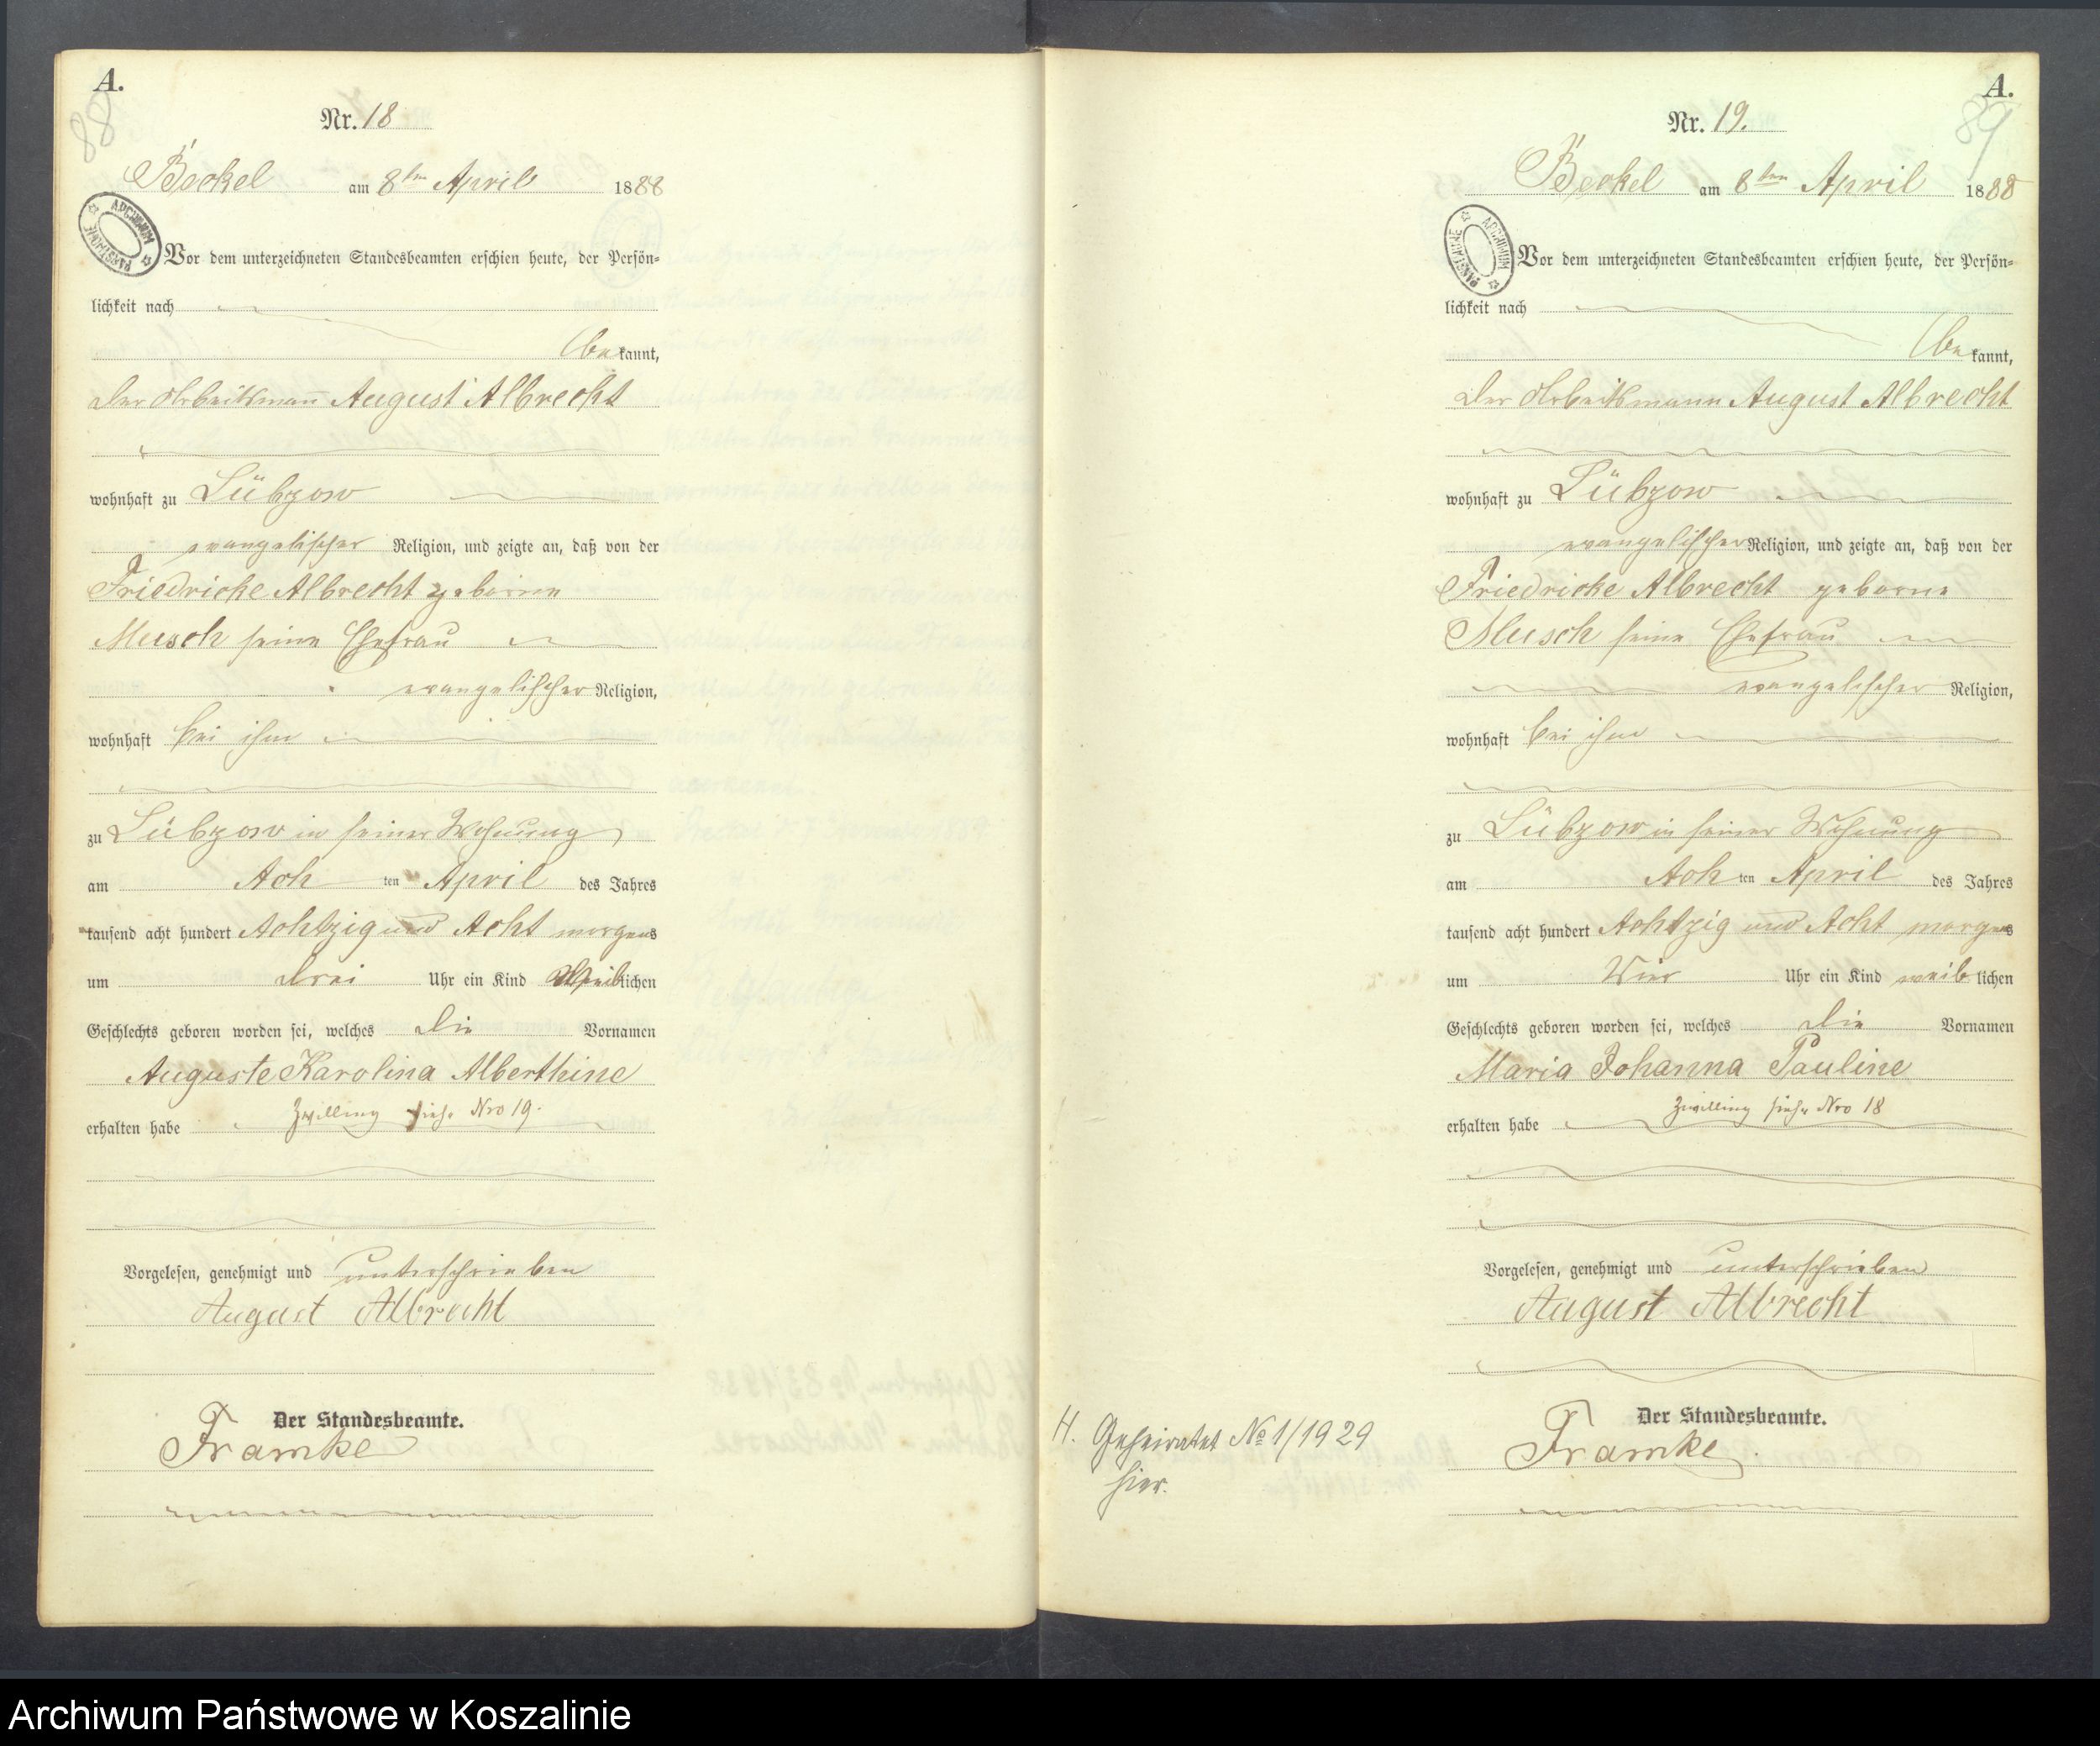 A.
88
Nr. 18
Beckel am 8ten April 1888
ARCHIWUM PAŃSTWOWE
Vor dem unterzeichneten Standesbeamten erschien heute, der Persön-
lichkeit nach
bekannt,
der Arbeitsmann August Albrecht
wohnhaft zu Lübzow
evangelischer Religion, und zeigte an, daß von der
Friedricke Albrecht geborne
Musch seine Ehefrau
evangelischer Religion,
wohnhaft bei ihm
zu Lübzow in seiner Wohnung
am Achten April des Jahres
tausend acht hundert Achtzig und Acht morgens
um drei Uhr ein Kind weiblichen
Geschlechts geboren worden sei, welches die Vornamen
Auguste Karolina Alberthine
erhalten habe Zwilling siehe Nro 19.
Vorgelesen, genehmigt und unterschrieben
August Albrecht
Der Standesbeamte.
Framke
A.
89
Nr. 19.
Beckel am 8ten April 1888
ARCHIWUM PAŃSTWOWE
Vor dem unterzeichneten Standesbeamten erschien heute, der Persön-
lichkeit nach
bekannt,
der Arbeitsmann August Albrecht
wohnhaft zu Lübzow
evangelischer Religion, und zeigte an, daß von der
Friedricke Albrecht geborne
Musch seine Ehefrau
evangelischer Religion,
wohnhaft bei ihm
zu Lübzow in seiner Wohnung
am Achten April des Jahres
tausend acht hundert Achtzig und Acht morgens
um Vier Uhr ein Kind weiblichen
Geschlechts geboren worden sei, welches die Vornamen
Maria Johanna Pauline
erhalten habe Zwilling siehe Nro 18
Vorgelesen, genehmigt und unterschrieben
August Albrecht
Der Standesbeamte.
Framke.
H. Geheiratet No 1/1929
hier.
Archiwum Państwowe w Koszalinie